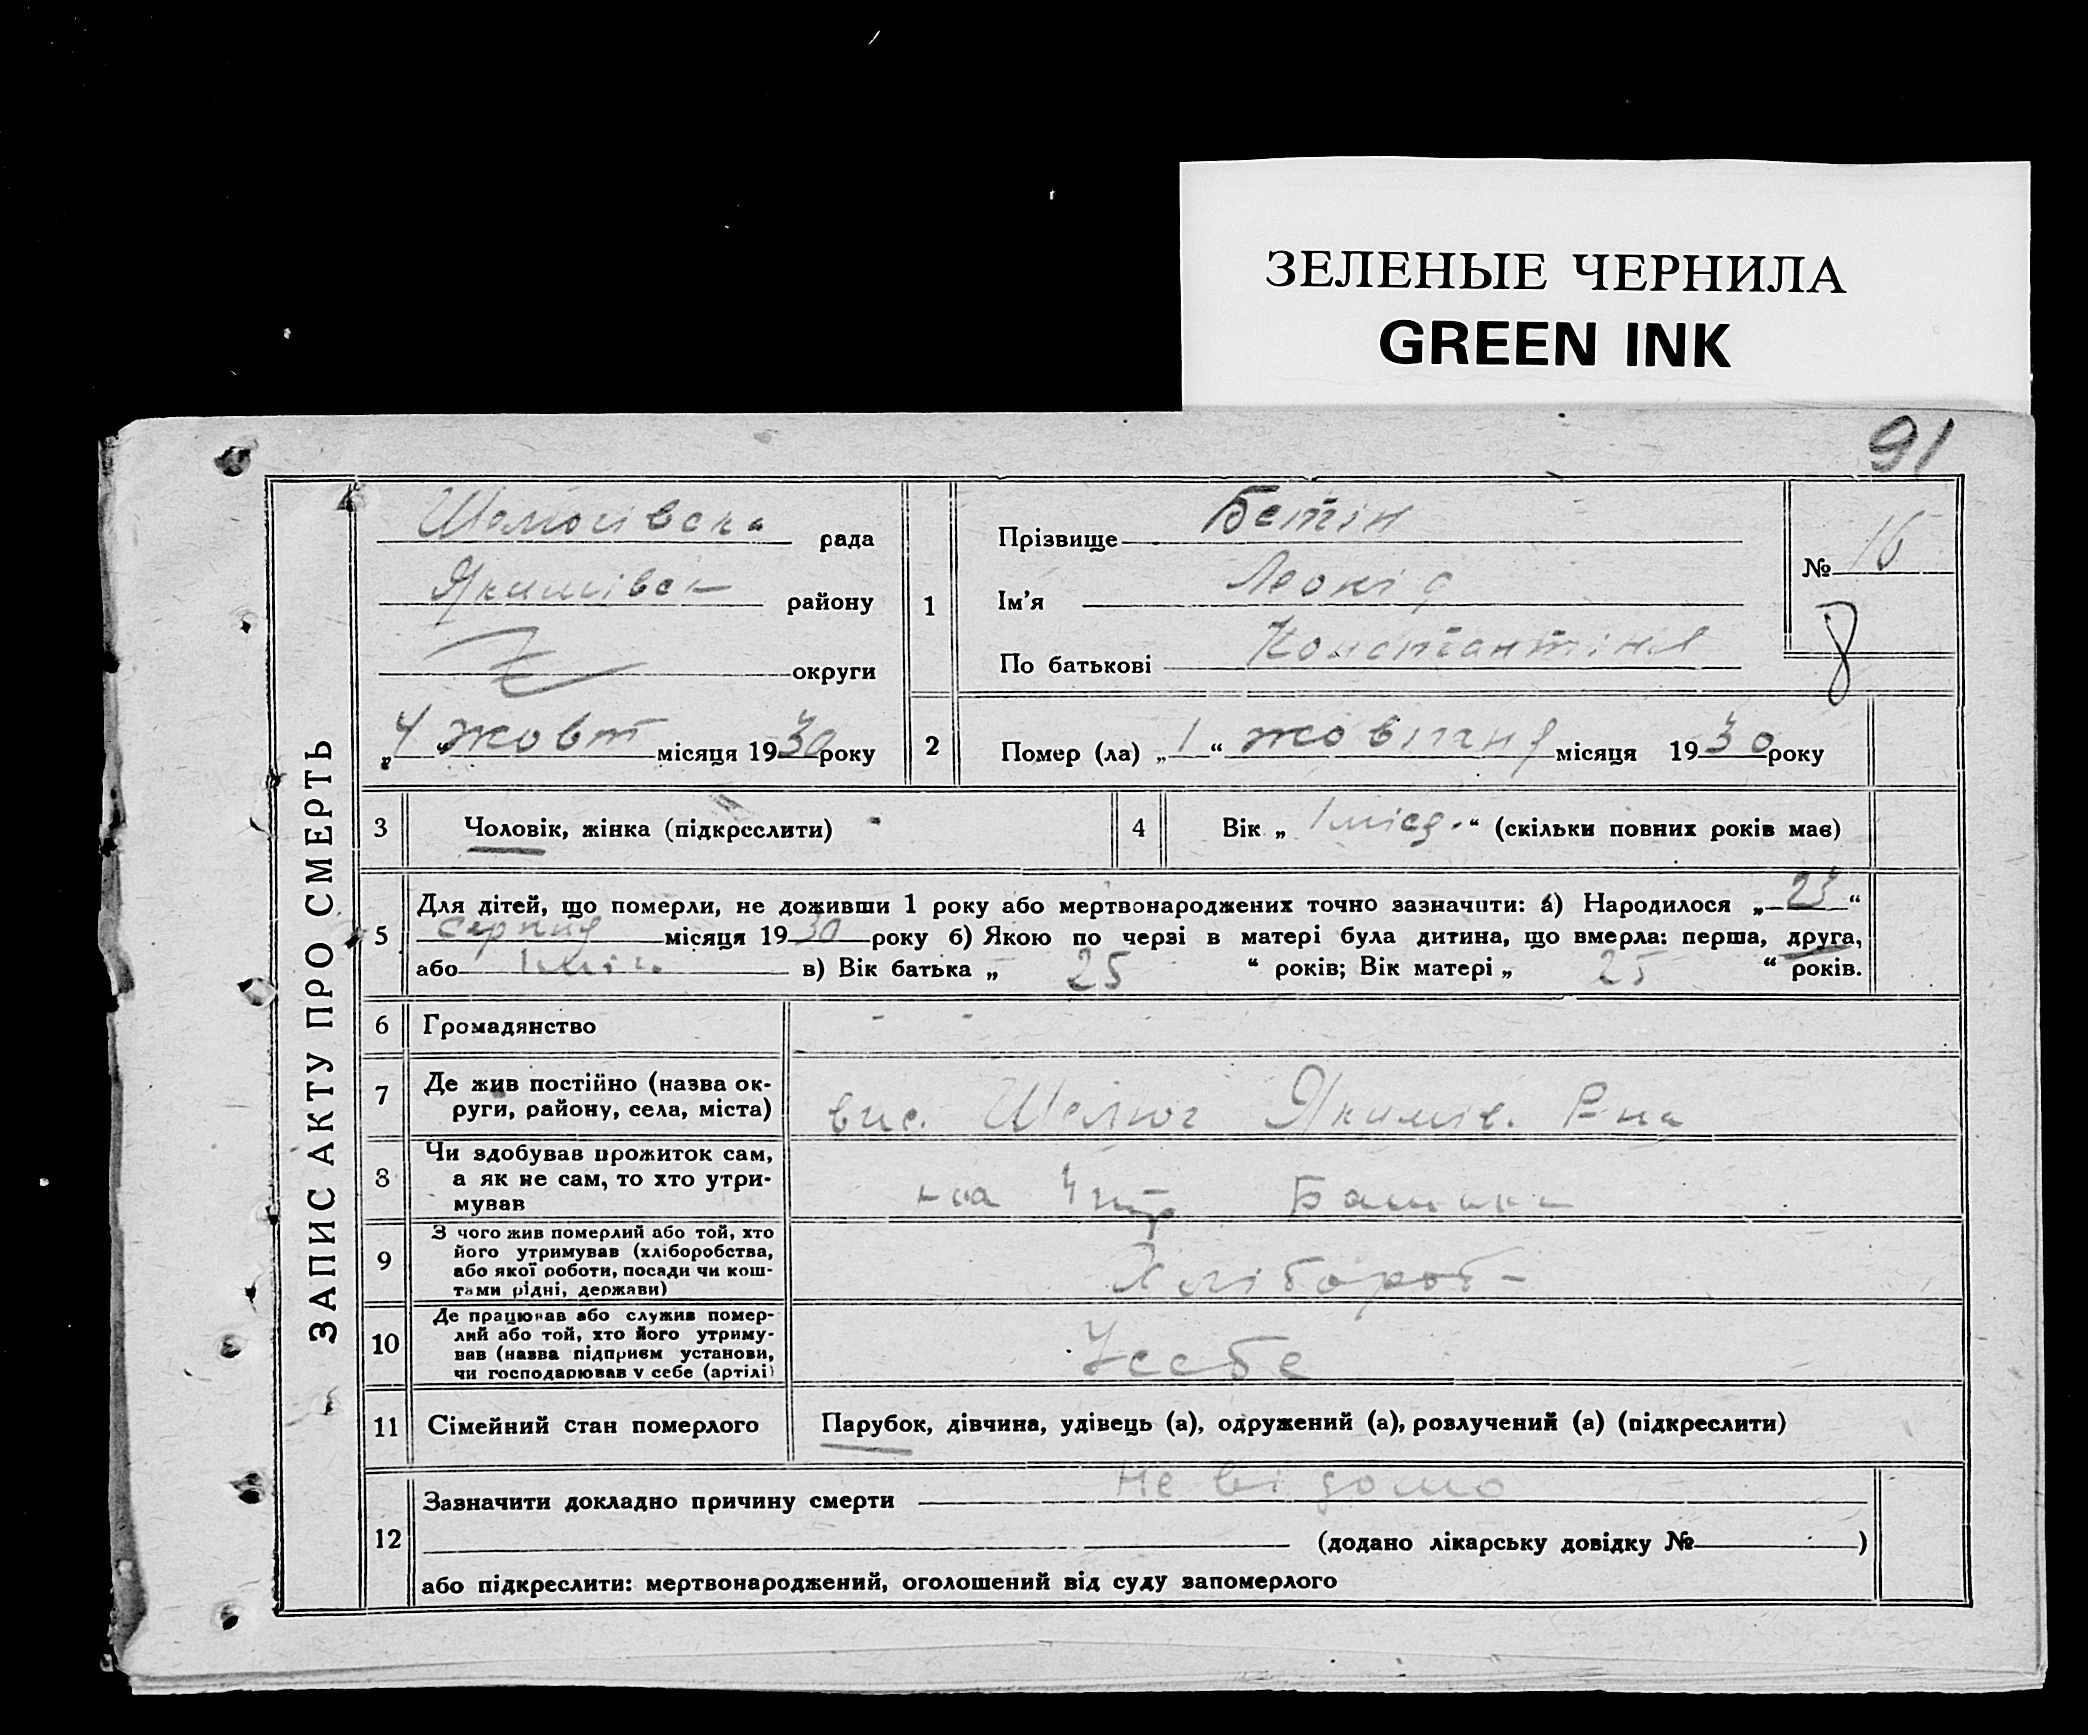 ЗЕЛЕНЫЕ ЧЕРНИЛА
GREEN INK
91
ЗАПИС АКТУ ПРО СМЕРТЬ
рада
Якимівськ району
округи
„4“ жовт місяця 1930 року
1
Прізвище Бетін
Ім’я Леонід
По батькові
№ 16
8
2
Помер (ла) „1“ жовтня місяця 1930 року
3
Чоловік, жінка (підкреслити)
4
Вік „1 місяц.“ (скільки повних років має)
5
Для дітей, що померли, не доживши 1 року або мертвонароджених точно зазначити: а) Народилося „23“
серпня місяця 1930 року б) Якою по черзі в матері була дитина, що вмерла: перша, друга,
або в) Вік батька „25“ років; Вік матері „25“ років.
6
Громадянство
7
Де жив постійно (назва ок-
руги, району, села, міста)
вис. Шелюг Якимів. Р-на
8
Чи здобував прожиток сам,
а як не сам, то хто утри-
мував
на утр Батька
9
З чого жив померлий або той, хто
його утримував (хліборобства,
або якої роботи, посади чи кош-
тами рідні, держави)
Хлібороб
10
Де працював або служив помер-
лий або той, хто його утриму-
вав (назва підприєм установи,
чи господарював у себе (артілі)
У себе
11
Сімейний стан померлого
Парубок, дівчина, удівець (а), одружений (а), розлучений (а) (підкреслити)
12
Зазначити докладно причину смерти Не відомо
(додано лікарську довідку № )
або підкреслити: мертвонароджений, оголошений від суду запомерлого